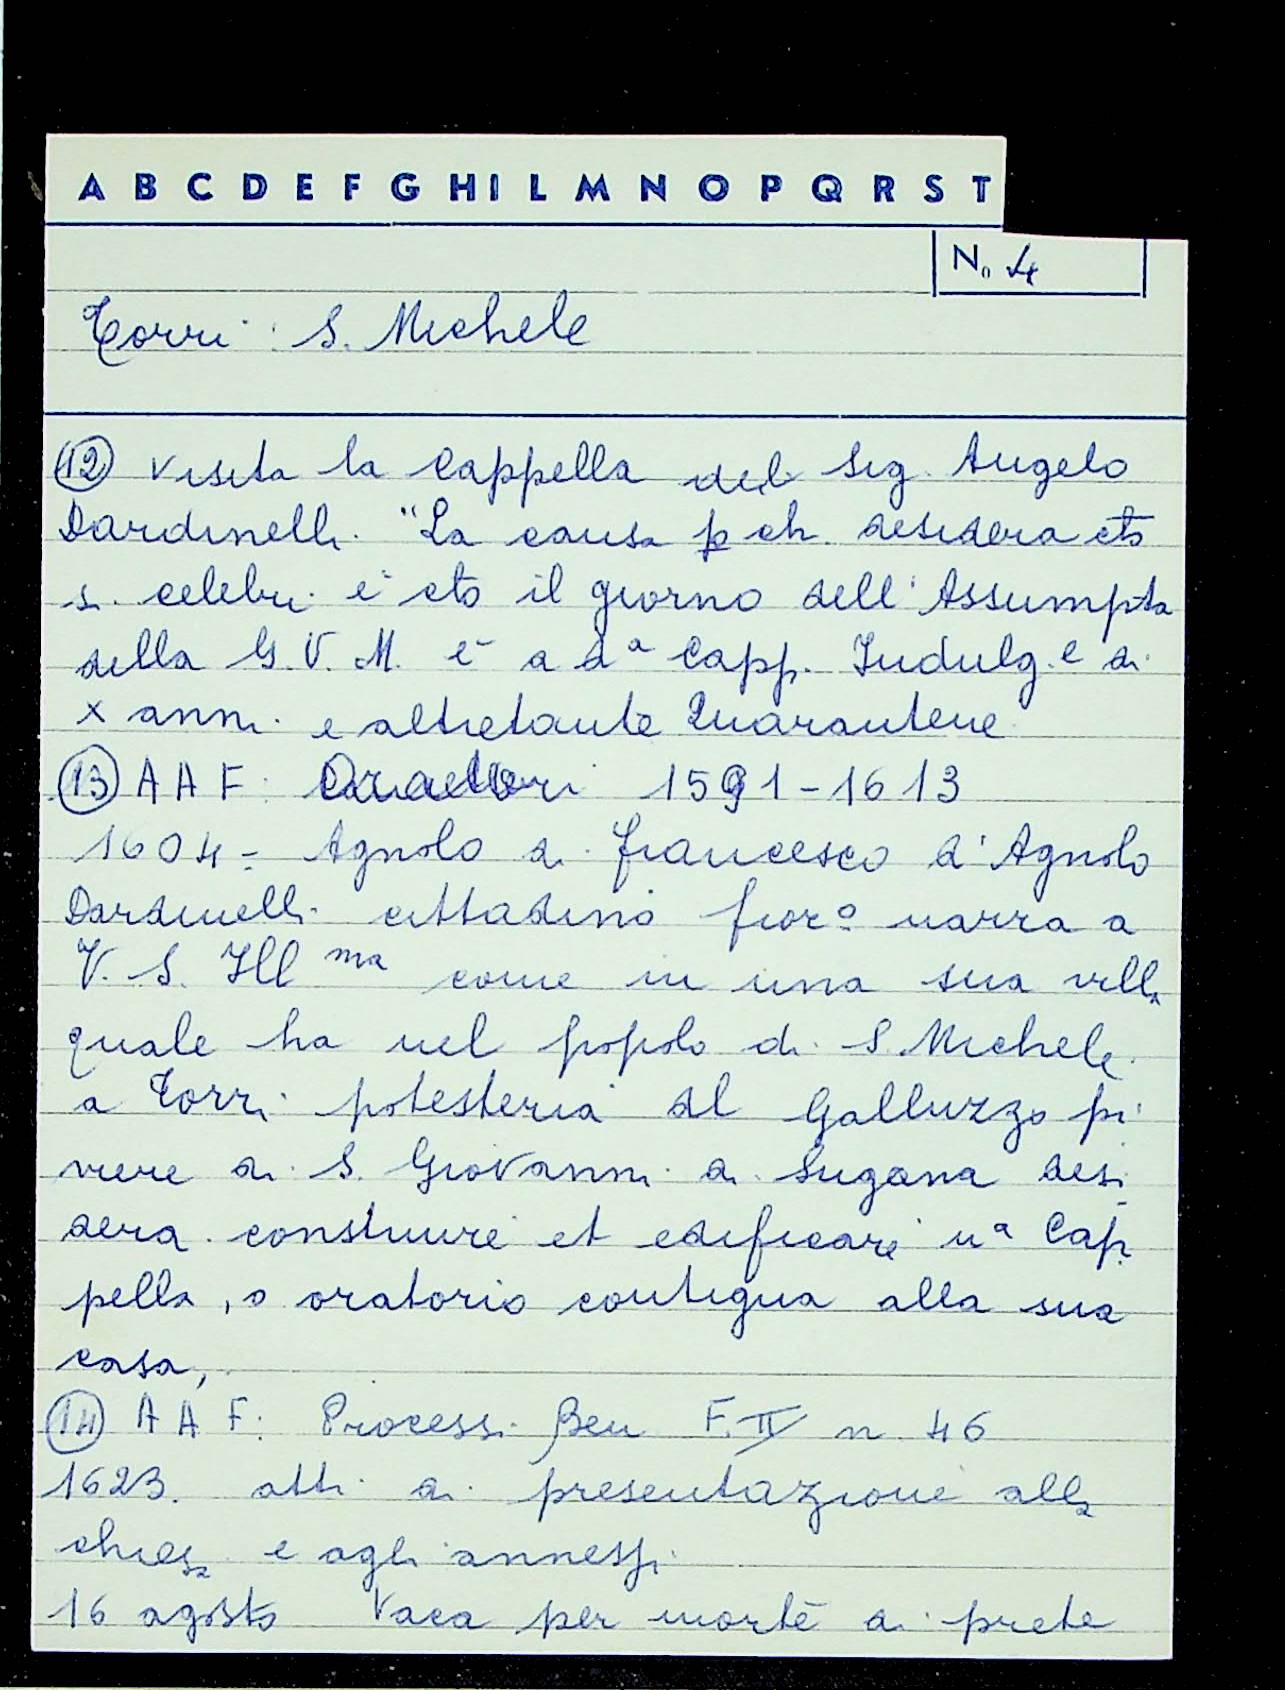 A B C D E F G H I L M N O P Q R S T
N. 4
Torri: S. Michele
(12) visita la Cappella del Sig. Angelo
Dardinelli. "La causa p ch. desidera cto
si celebri è cto il giorno dell'Assumpta
della G.V.M. è a da Capp. Indulg.e di
X anni e altretante Quarantene
(13) A A F: 1591-1613
1604 - Agnolo di Francesco d'Agnolo
Dardinelli cittadino fior.o narra a
V. S. Ill ma come in una sua villa
quale ha nel popolo di S. Michele
a Torri potesteria del Galluzzo pi
viere di S. Giovanni di Sugana desi
dera construire et edificare na Cap
pella, o oratorio contigua alla sua
casa,
(14) A A F: Processi Ben F. II n 46
1623. atti di presentazione alla
chiesa e agli annessi
16 agosto Vaca per morte di prete